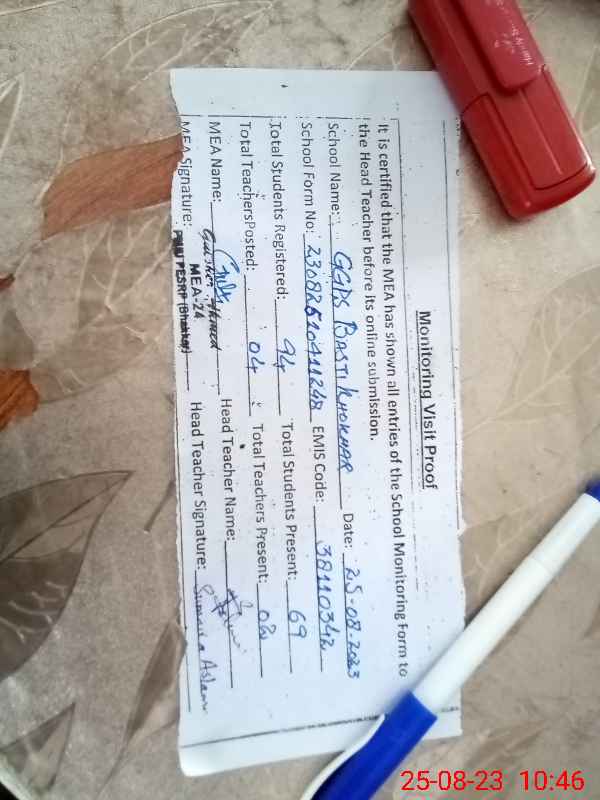 Monitoring Visit Proof
It is certified that the MEA has shown all entries of the School Monitoring Form to
the Head Teacher before its online submission.
School Name: GGPS BASTI KHOKHAR Date: 25-08-2023
School Form No: EMIS Code: 38110342
Total Students Registered: 94 Total Students Present: 69
Total Teachers Posted: 04 Total Teachers Present: 02
MEA Name: Head Teacher Name:
MEA-24
MEA Signature: Head Teacher Signature: Sumaira Aslam
25-08-23 10:46